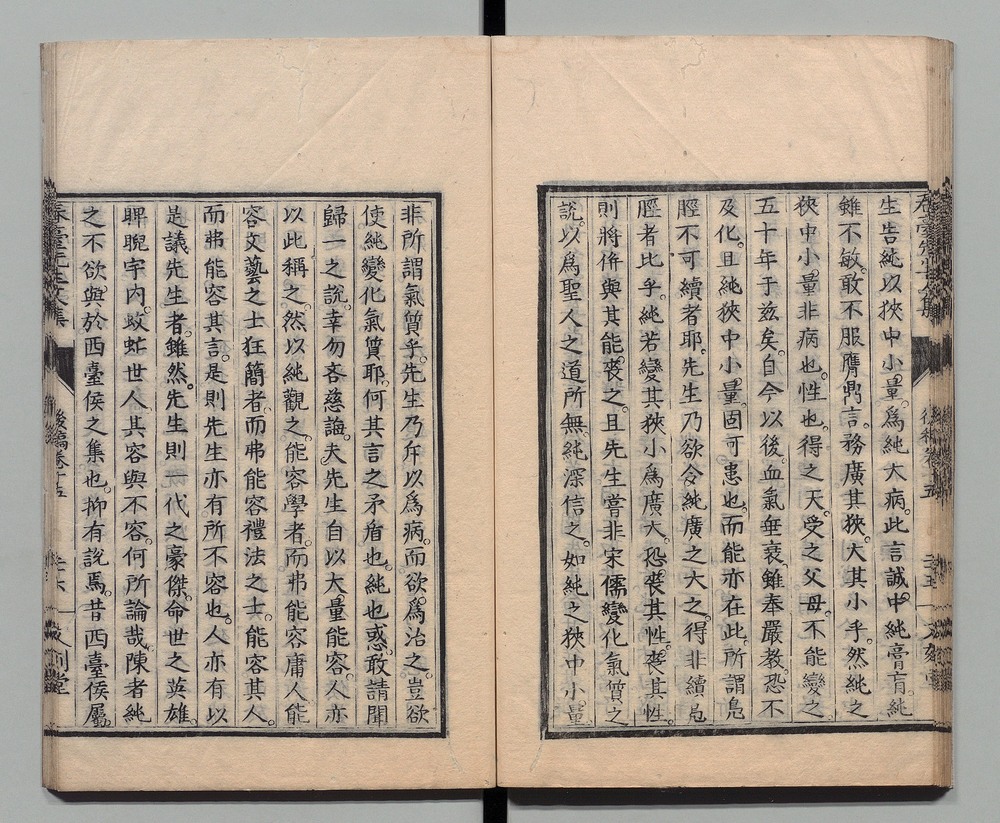 生告純以狹中小量爲純大病。此言誠中純膏肓。純
雖不敏。敢不服膺鄸言。務廣其狹。大其小乎。然純之
狹中小量。非病也。性也。得之天。受之父母。不能變之
五十年于茲矣。自今以後。血氣垂衰。雖奉嚴教。恐不
及化。且純狹中小量。固可患也。而能亦在此。所謂鳧
脛不可續者耶。先生乃欲令純廣之大之。得非續鳧
脛者比乎。純若變其狹小爲廣大。恐喪其性。喪其性。
則將倂與其能喪之。且先生嘗非宋儒變化氣質之
説。以爲聖人之道所無。純深信之。如純之狹中小量。
非所謂氣質乎。先生乃斥以爲病。而欲爲治之。豈欲
使純變化氣質耶。何其言之矛盾也。純也惑。敢請聞
歸一之説。幸勿吝慈誨。夫先生自以大量能容。人亦
以此稱之。然以純觀之。能容學者。而弗能容庸人。能
容文藝之士狂簡者。而弗能容禮法之士。能容其人。
而弗能容其言。是則先生亦有所不容也。人亦有以
是議先生者。雖然。先生則一代之豪傑。命世之英雄。
睥睨宇内。蚊虻世人。其容與不容。何所論哉。陳者純
之不欲與於西臺侯之集也。抑有説焉。昔西臺侯屬
春臺先生文集
後稿卷十五